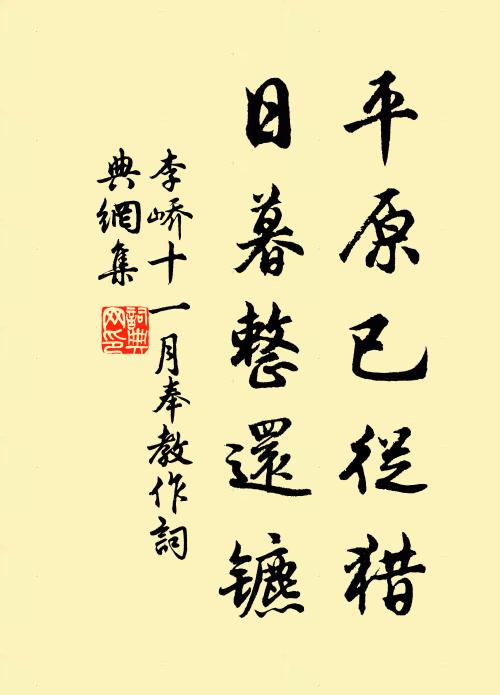 平原已從猎
日暮整還镳
李嶠十一月奉教作詞
典網集
詞典
网印